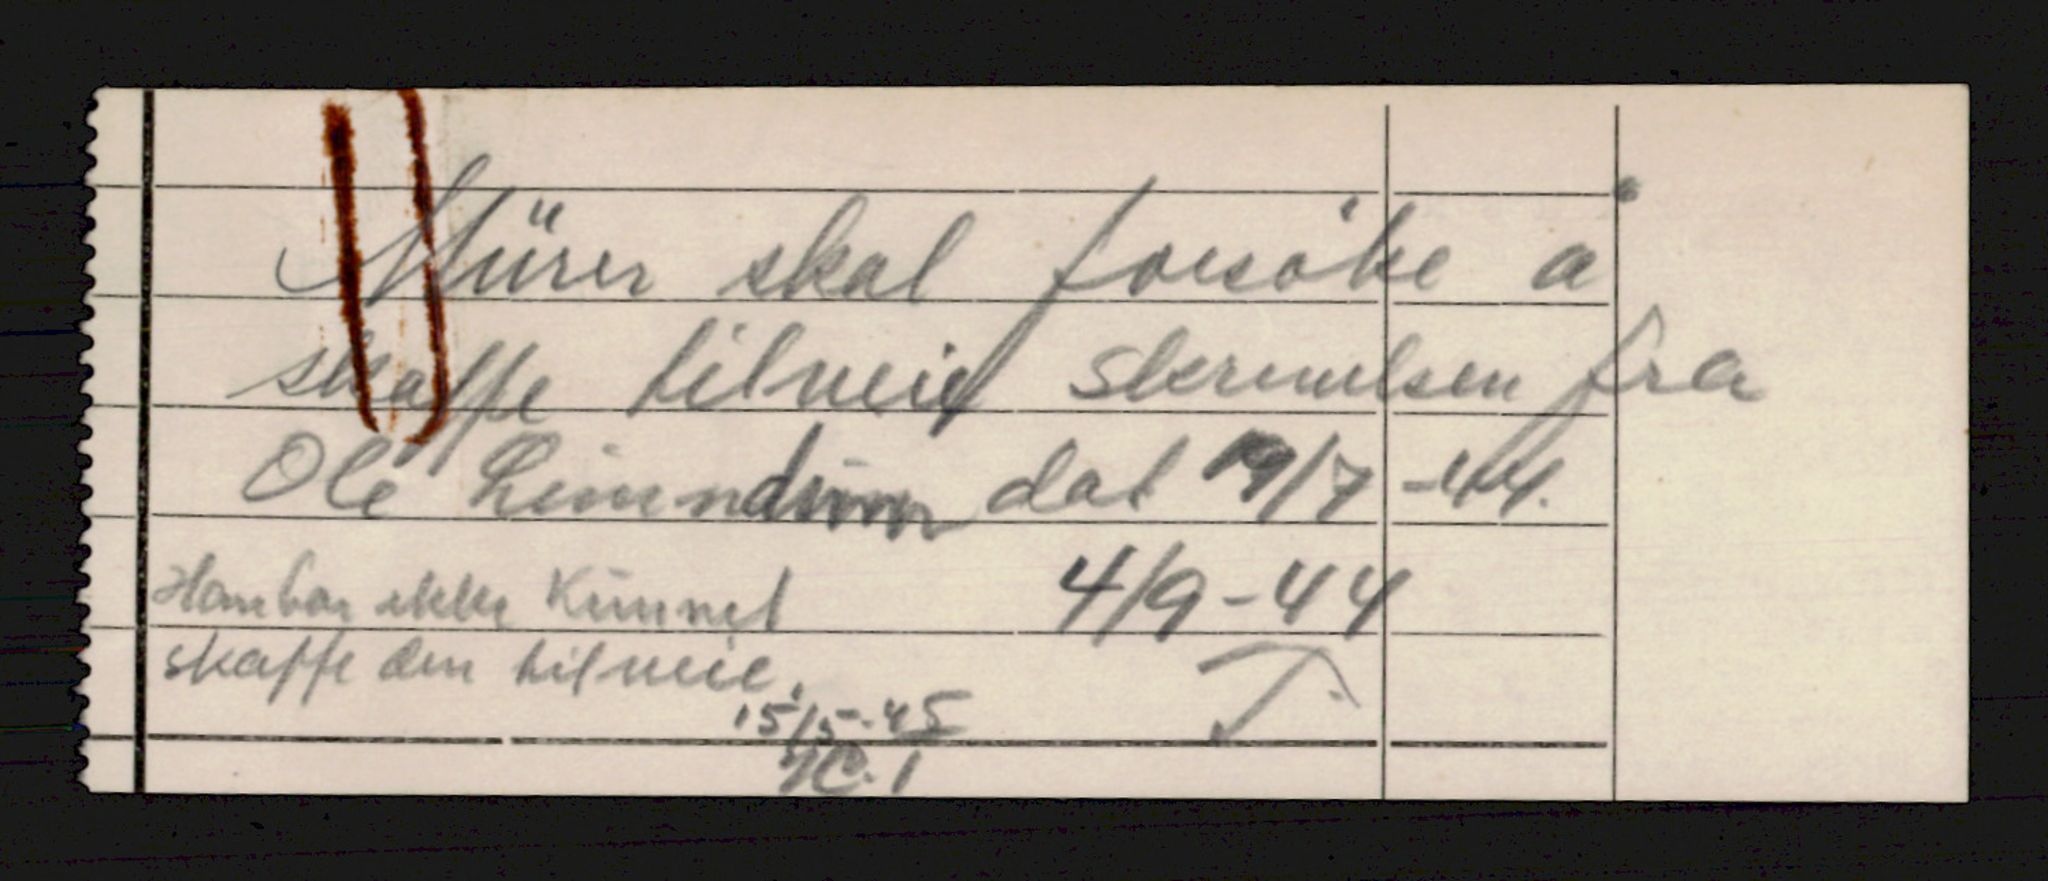 Mürer skal forsöke å
skaffe tilveie skrivelsen fra
Ole dat 19/7-44.
4/9-44
Han har ikke kunnet
skaffe den tilveie.
15/5-45